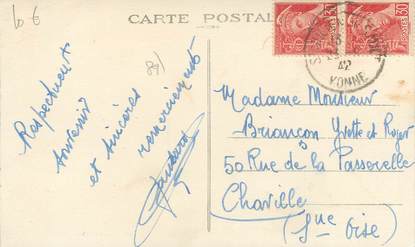 10 €
CARTE POSTALE
30
30
42
YONNE
(84)
Respectueux
souvenir
et sincères
remerciements
Madame Monsieur
Briançon Yvette et Roger
50 Rue de la Passerelle
Chaville
(Sne Oise)